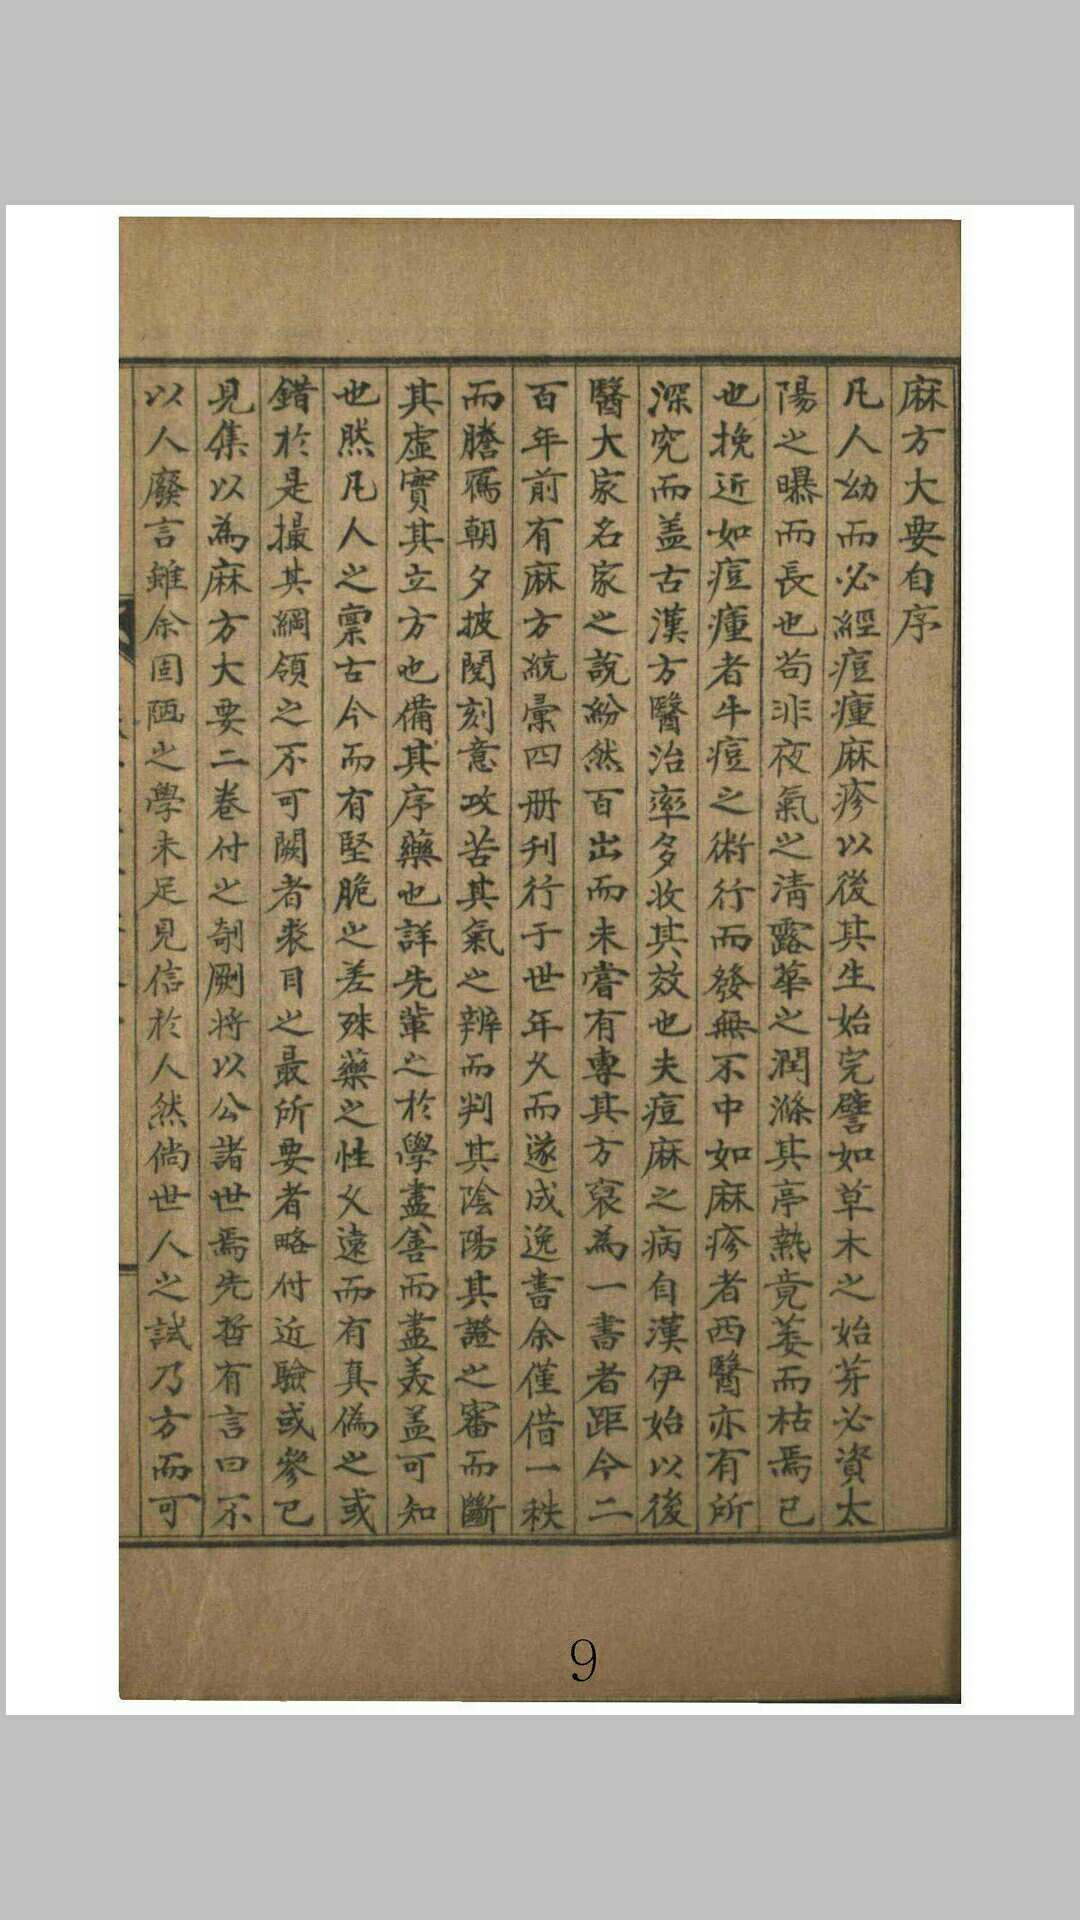 麻方大要自序
凡人幼而必經痘瘇麻疹以後其生始完譬如草木之始芽必資太
陽之曝而長也苟非夜氣之清露華之潤滌其亭熱竟萎而枯焉已
也挽近如痘瘇者牛痘之術行而發無不中如麻疹者西醫亦有所
深究而盖古漢方醫治率多收其效也夫痘麻之病自漢伊始以後
醫大家名家之說紛然百出而未嘗有專其方裒為一書者距今二
百年前有麻方統彙四册刋行于世年久而遂成逸書余僅借一秩
而謄寫朝夕披閱刻意攻苦其氣之辨而判其陰陽其證之審而斷
其虛實其立方也備其序藥也詳先輩之於學盡善而盡美盖可知
也然凡人之禀古今而有堅脆之差殊藥之性久遠而有真僞之或
錯於是撮其綱領之不可闕者裘目之最所要者略付近驗或參已
見集以為麻方大要二卷付之剞劂将以公諸世焉先哲有言曰不
以人廢言雖余固陋之學未足見信於人然倘世人之試乃方而可
9